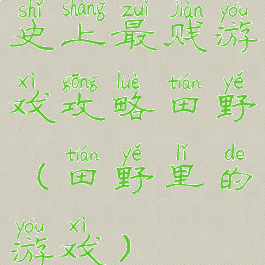 shǐ shàng zuì jiàn yóu
史上最贱游
xì gōng luè tián yě
戏攻略田野
tián yě lǐ de
（田野里的
yóu xì
游戏）